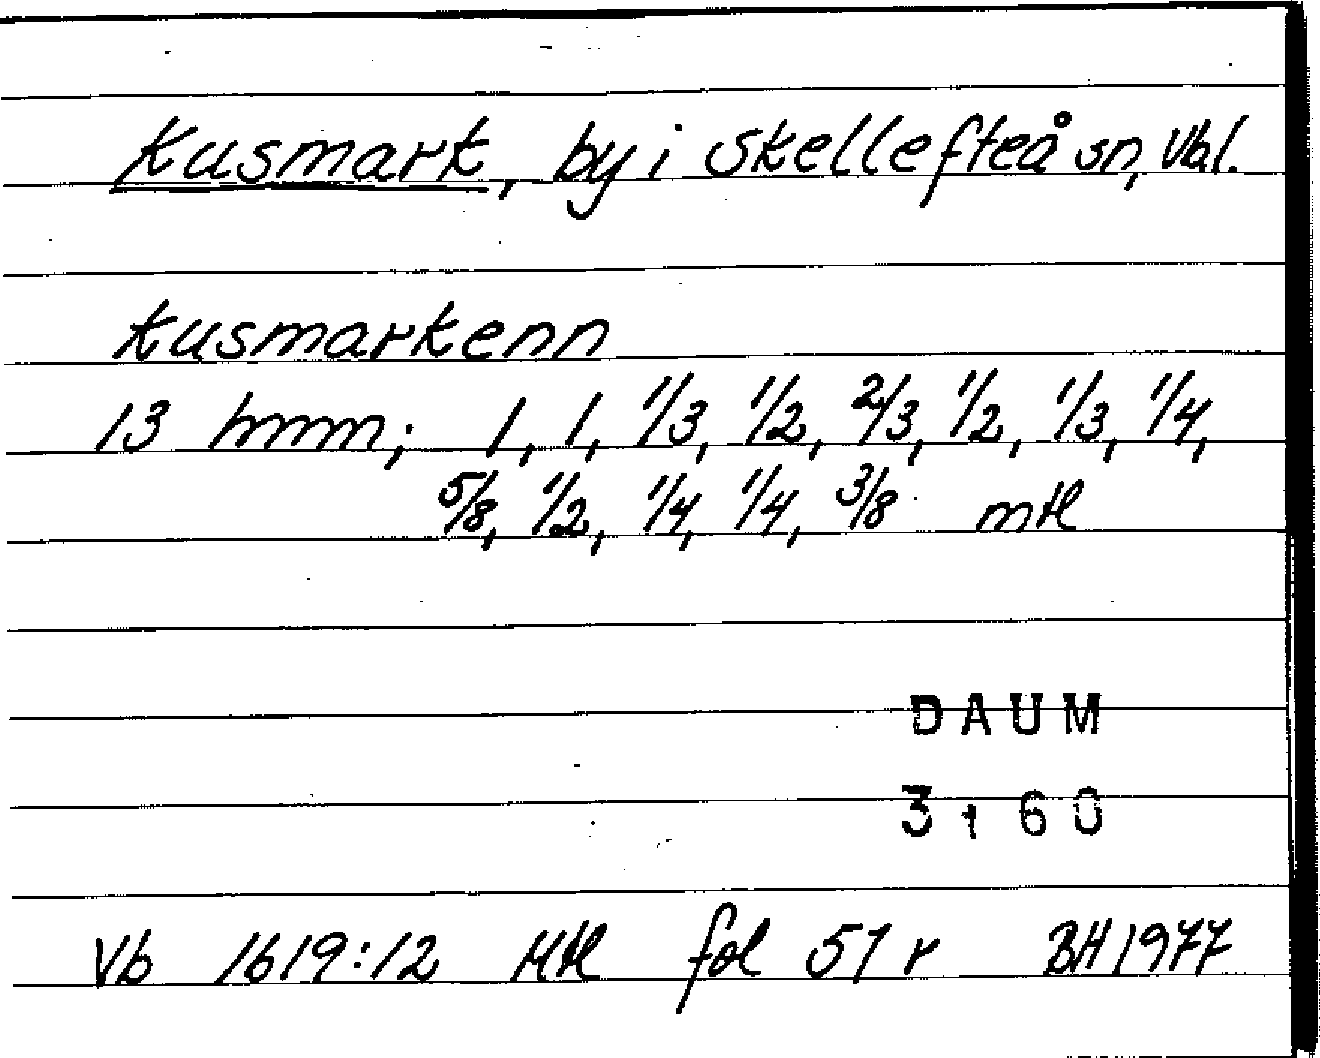 Kusmark, by i Skellefteå sn, Vbl.
Kusmarkenn
13 hmm; 1, 1, 1/3, 1/2, 2/3, 1/2, 1/3, 1/4,
5/8, 1/2, 1/4, 1/4, 3/8 mtl
DAUM
3160
Vb 1619:12 Mtl fol 51 r BH 1977